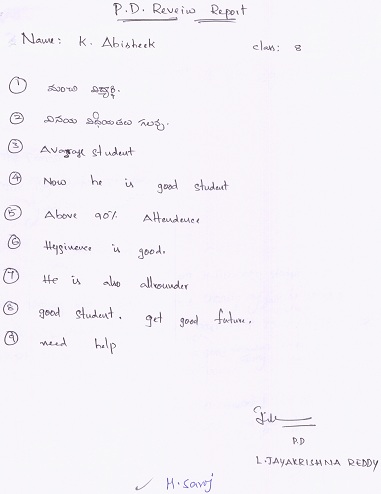 P.D. Reveiw Report
Name: K. Abisheek class: 8
① మంచి విద్యార్థి.
② వినయ విధేయతలు గలవు.
③ Avarage student
④ Now he is good student
⑤ Above 90% Attendence
⑥ Hyginence is good.
⑦ He is also allrounder
⑧ good student. get good future.
⑨ need help
P.D
L. JAYAKRISHNA REDDY
✓ M. Saroj